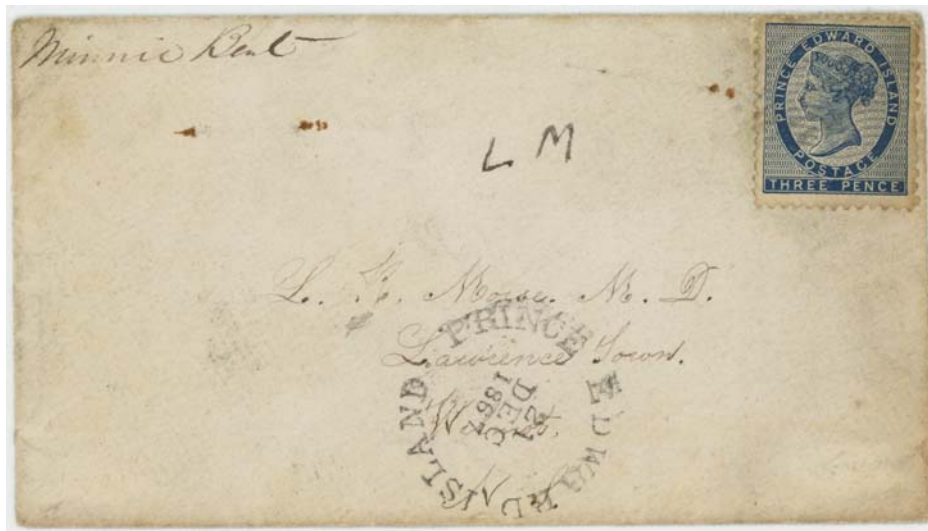 Minnie Bent
PRINCE EDWARD ISLAND
POSTAGE
THREE PENCE
L M
L. R. Morse. M. D.
Lawrence Town.
N. S.
PRINCE EDWARD ISLAND
DEC